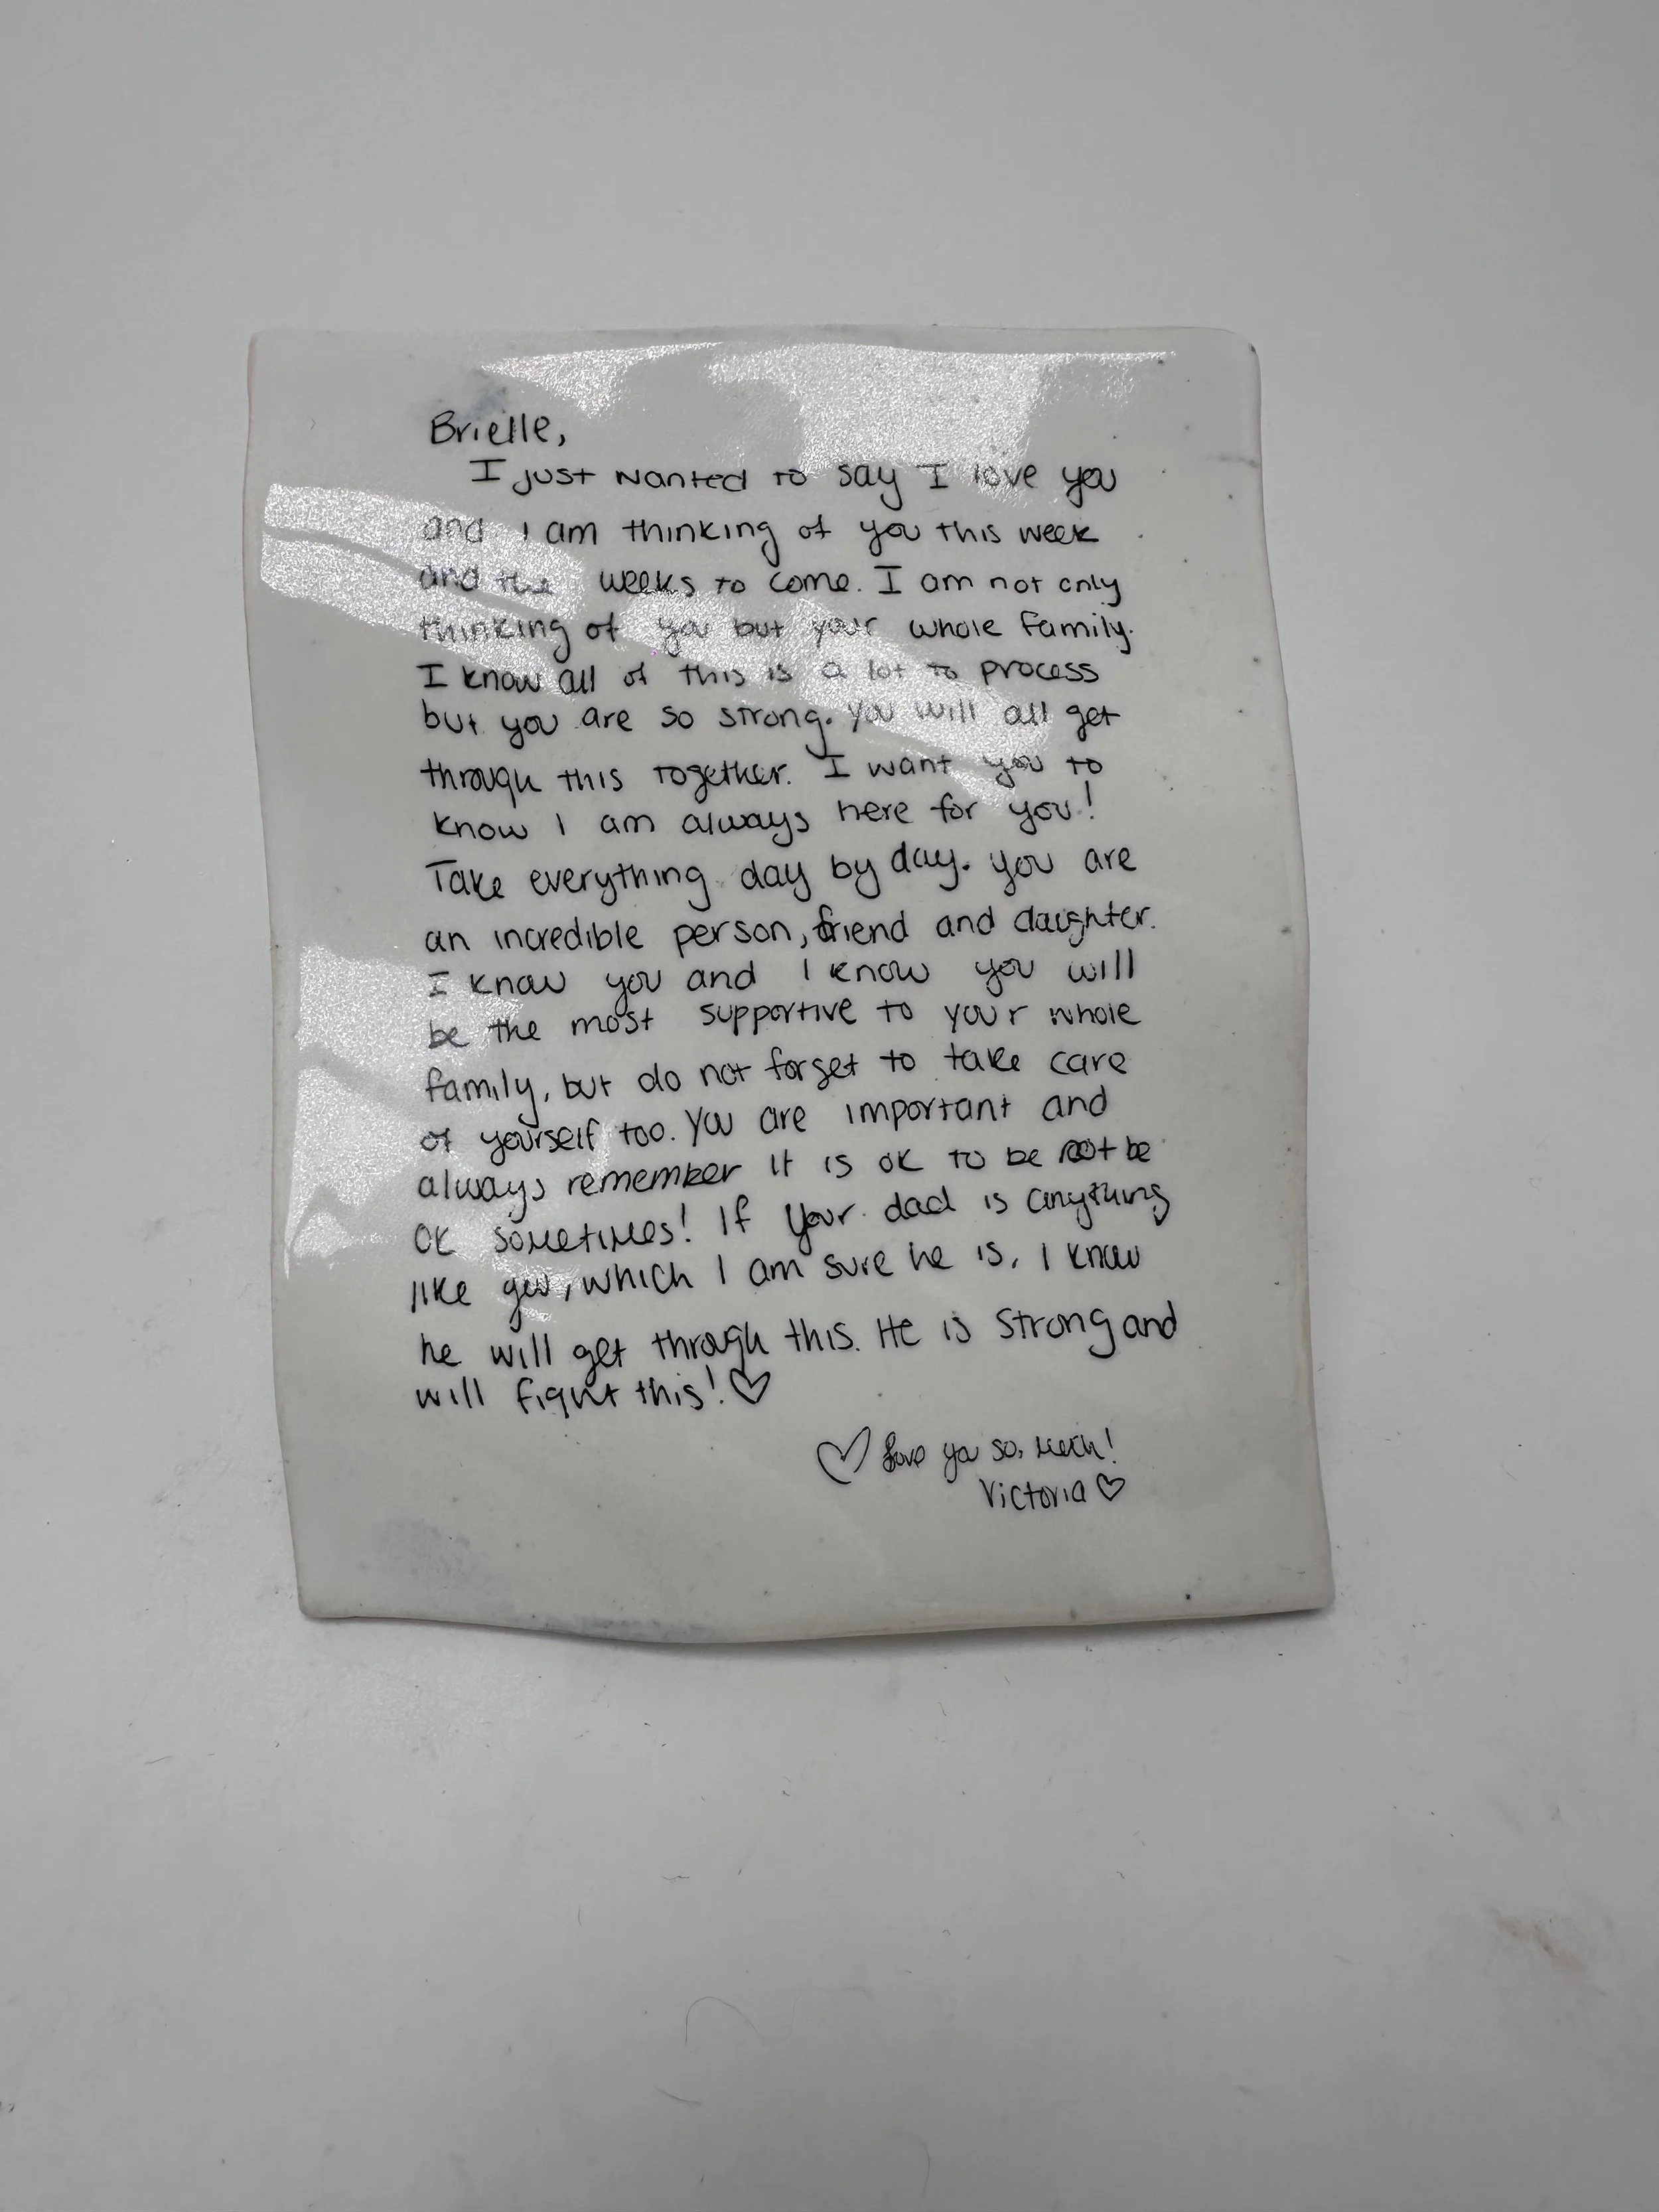 Brielle,
I just wanted to say I love you
and I am thinking of you this week
and the weeks to come. I am not only
thinking of you but your whole family.
I know all of this is a lot to process
but you are so strong. You will all get
through this together. I want you to
know I am always here for you!
Take everything day by day. You are
an incredible person, friend and daughter.
I know you and I know you will
be the most supportive to your whole
family, but do not forget to take care
of yourself too. You are important and
always remember it is ok to be not be
ok sometimes! If your dad is anything
like you, which I am sure he is, I know
he will get through this. He is strong and
will fight this! ♡
♡ Love you so, much!
Victoria ♡